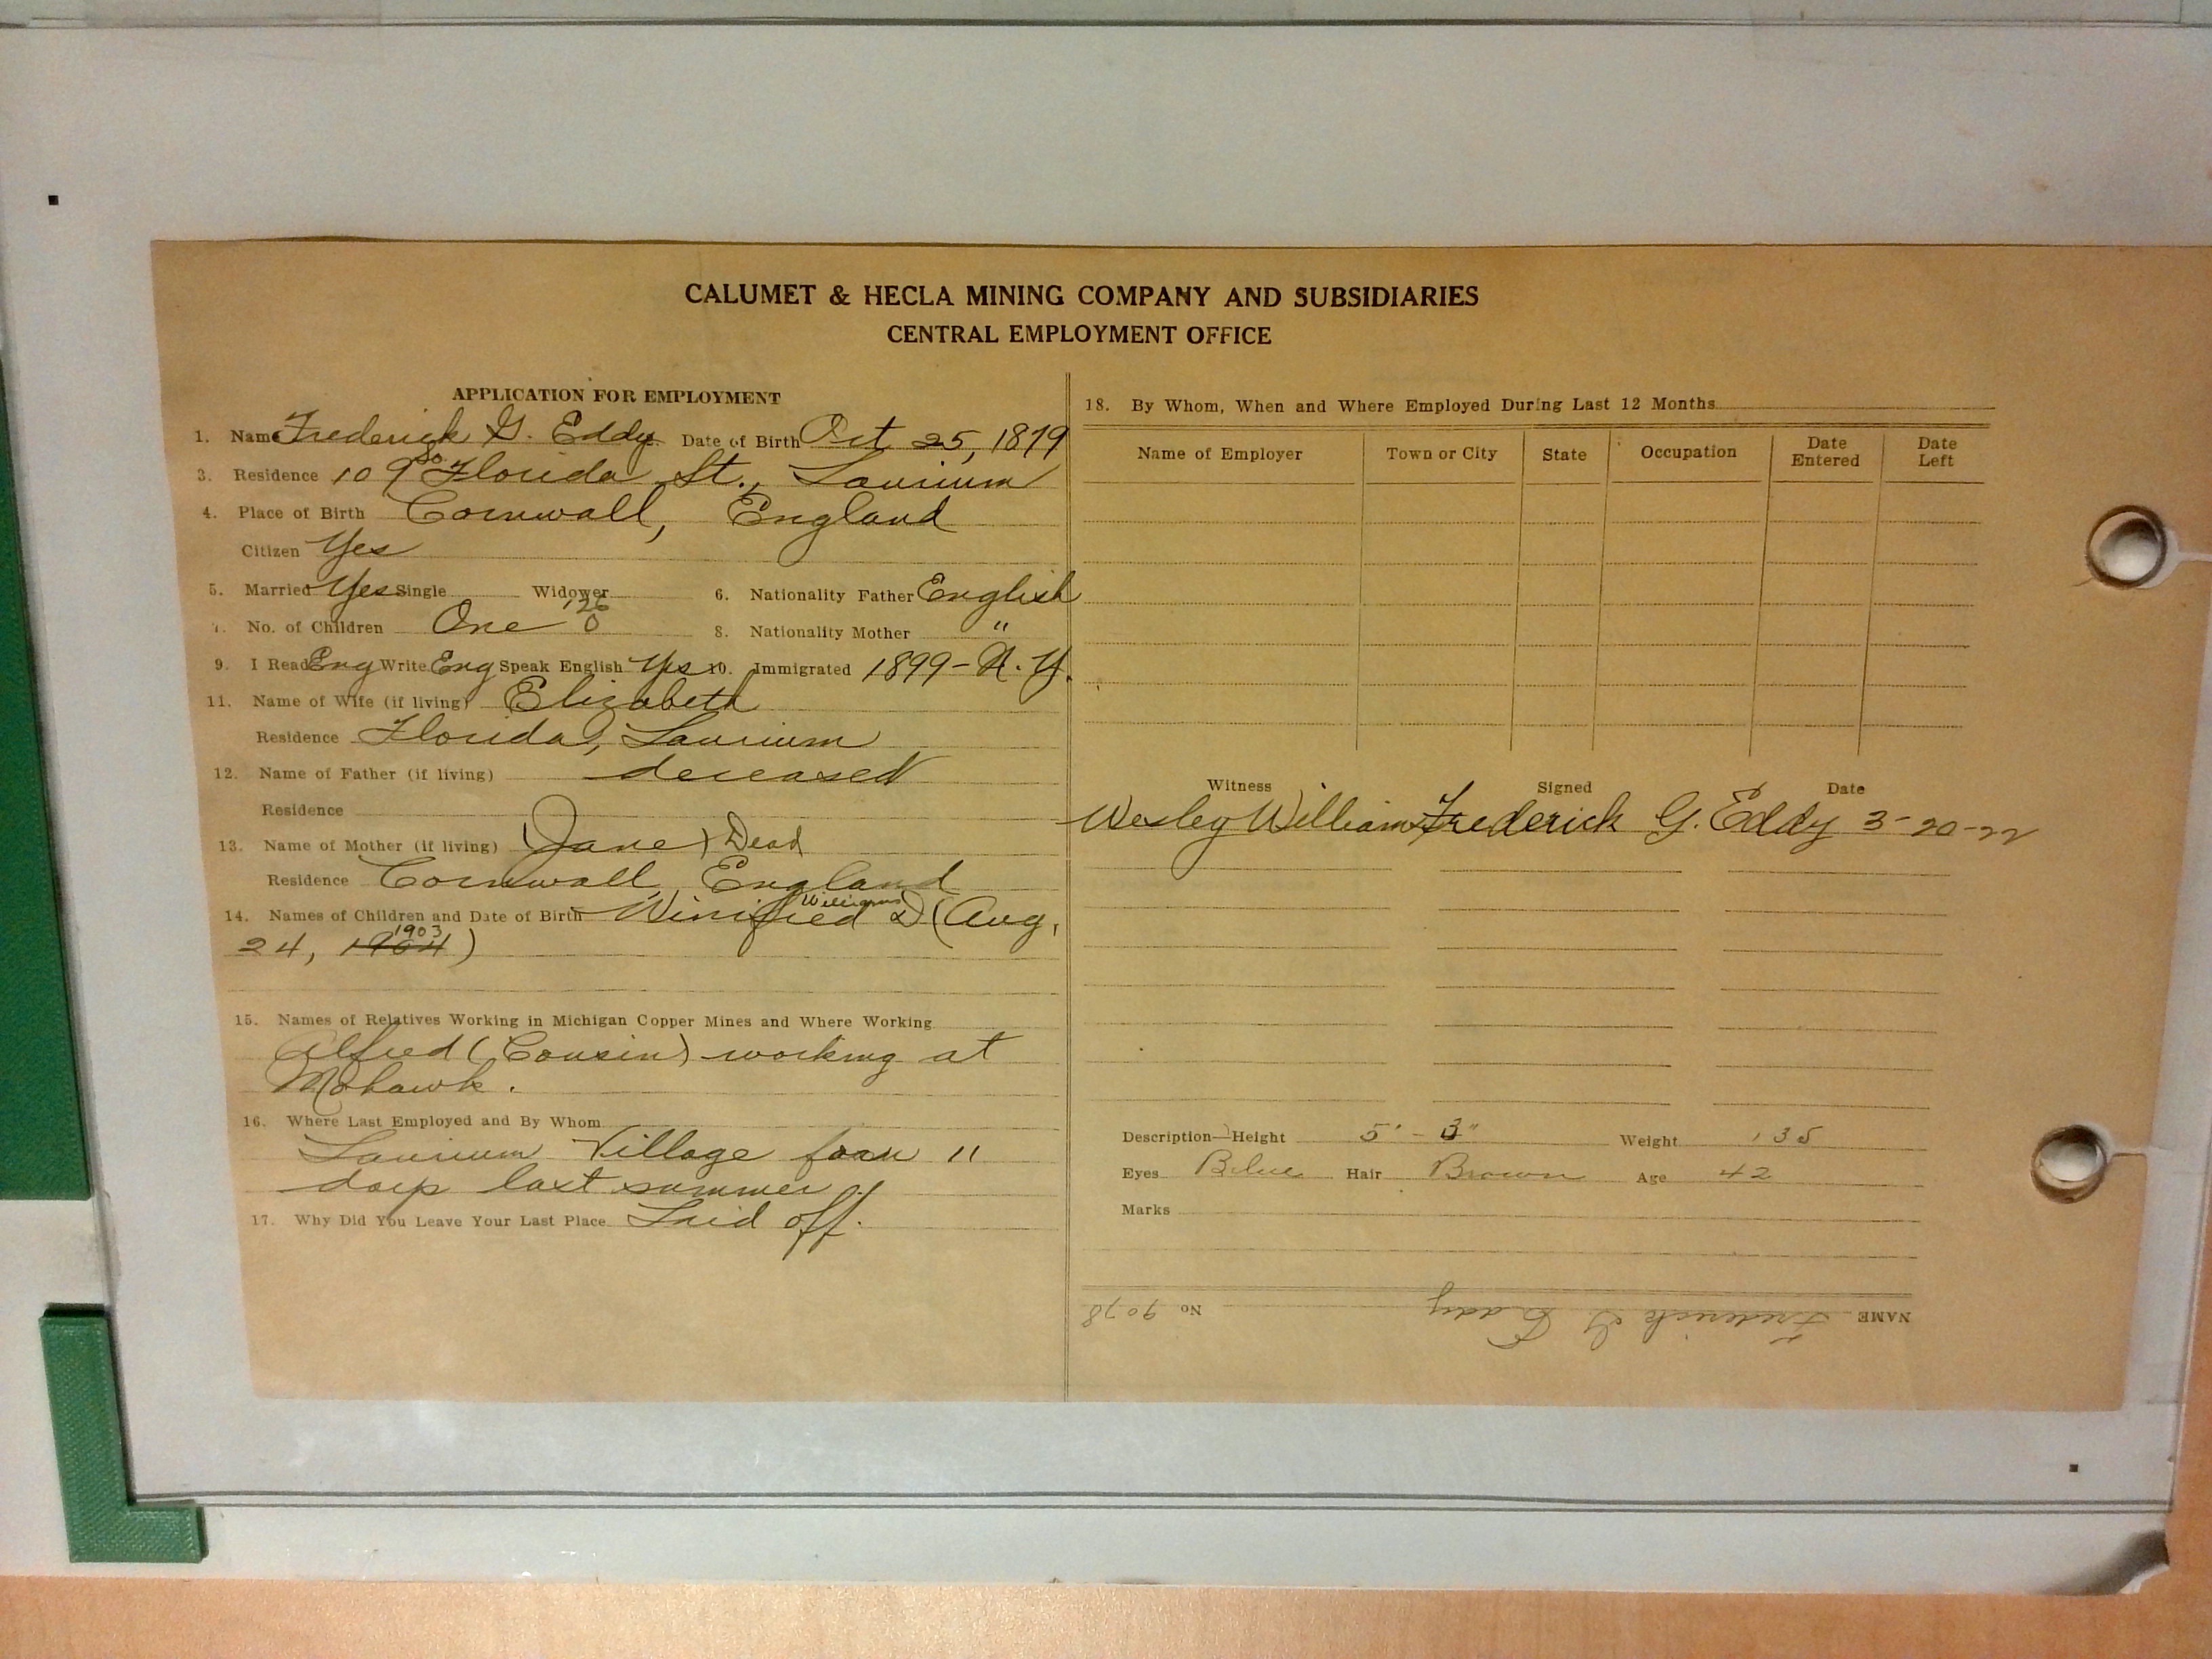 CALUMET & HECLA MINING COMPANY AND SUBSIDIARIES
CENTRAL EMPLOYMENT OFFICE
APPLICATION FOR EMPLOYMENT
1. Name Frederick G. Eddy Date of Birth Oct 25, 1879
3. Residence 109 So Florida St., Laurium
4. Place of Birth Cornwall, England
Citizen Yes
5. Married Yes Single Widower 6. Nationality Father English
7. No. of Children One 8. Nationality Mother "
9. I Read Eng Write Eng Speak English Yes 10. Immigrated 1899 - N. Y.
11. Name of Wife (if living) Elizabeth
Residence Florida, Laurium
12. Name of Father (if living) deceased
Residence
13. Name of Mother (if living) (Jane) Dead
Residence Cornwall, England
14. Names of Children and Date of Birth Winifred Williams D (Aug.
24, 1904 1903)
15. Names of Relatives Working in Michigan Copper Mines and Where Working
Alfred (Cousin) working at
Mohawk.
16. Where Last Employed and By Whom
Laurium Village 11
days last summer
17. Why Did You Leave Your Last Place Laid off.
18. By Whom, When and Where Employed During Last 12 Months
Name of Employer Town or City State Occupation Date Entered Date Left
Witness Signed Date
Wesley Williams Frederick G. Eddy 3-20-22
Description—Height 5' - 3" Weight 135
Eyes Blue Hair Brown Age 42
Marks
NAME Frederick G Eddy No 9078